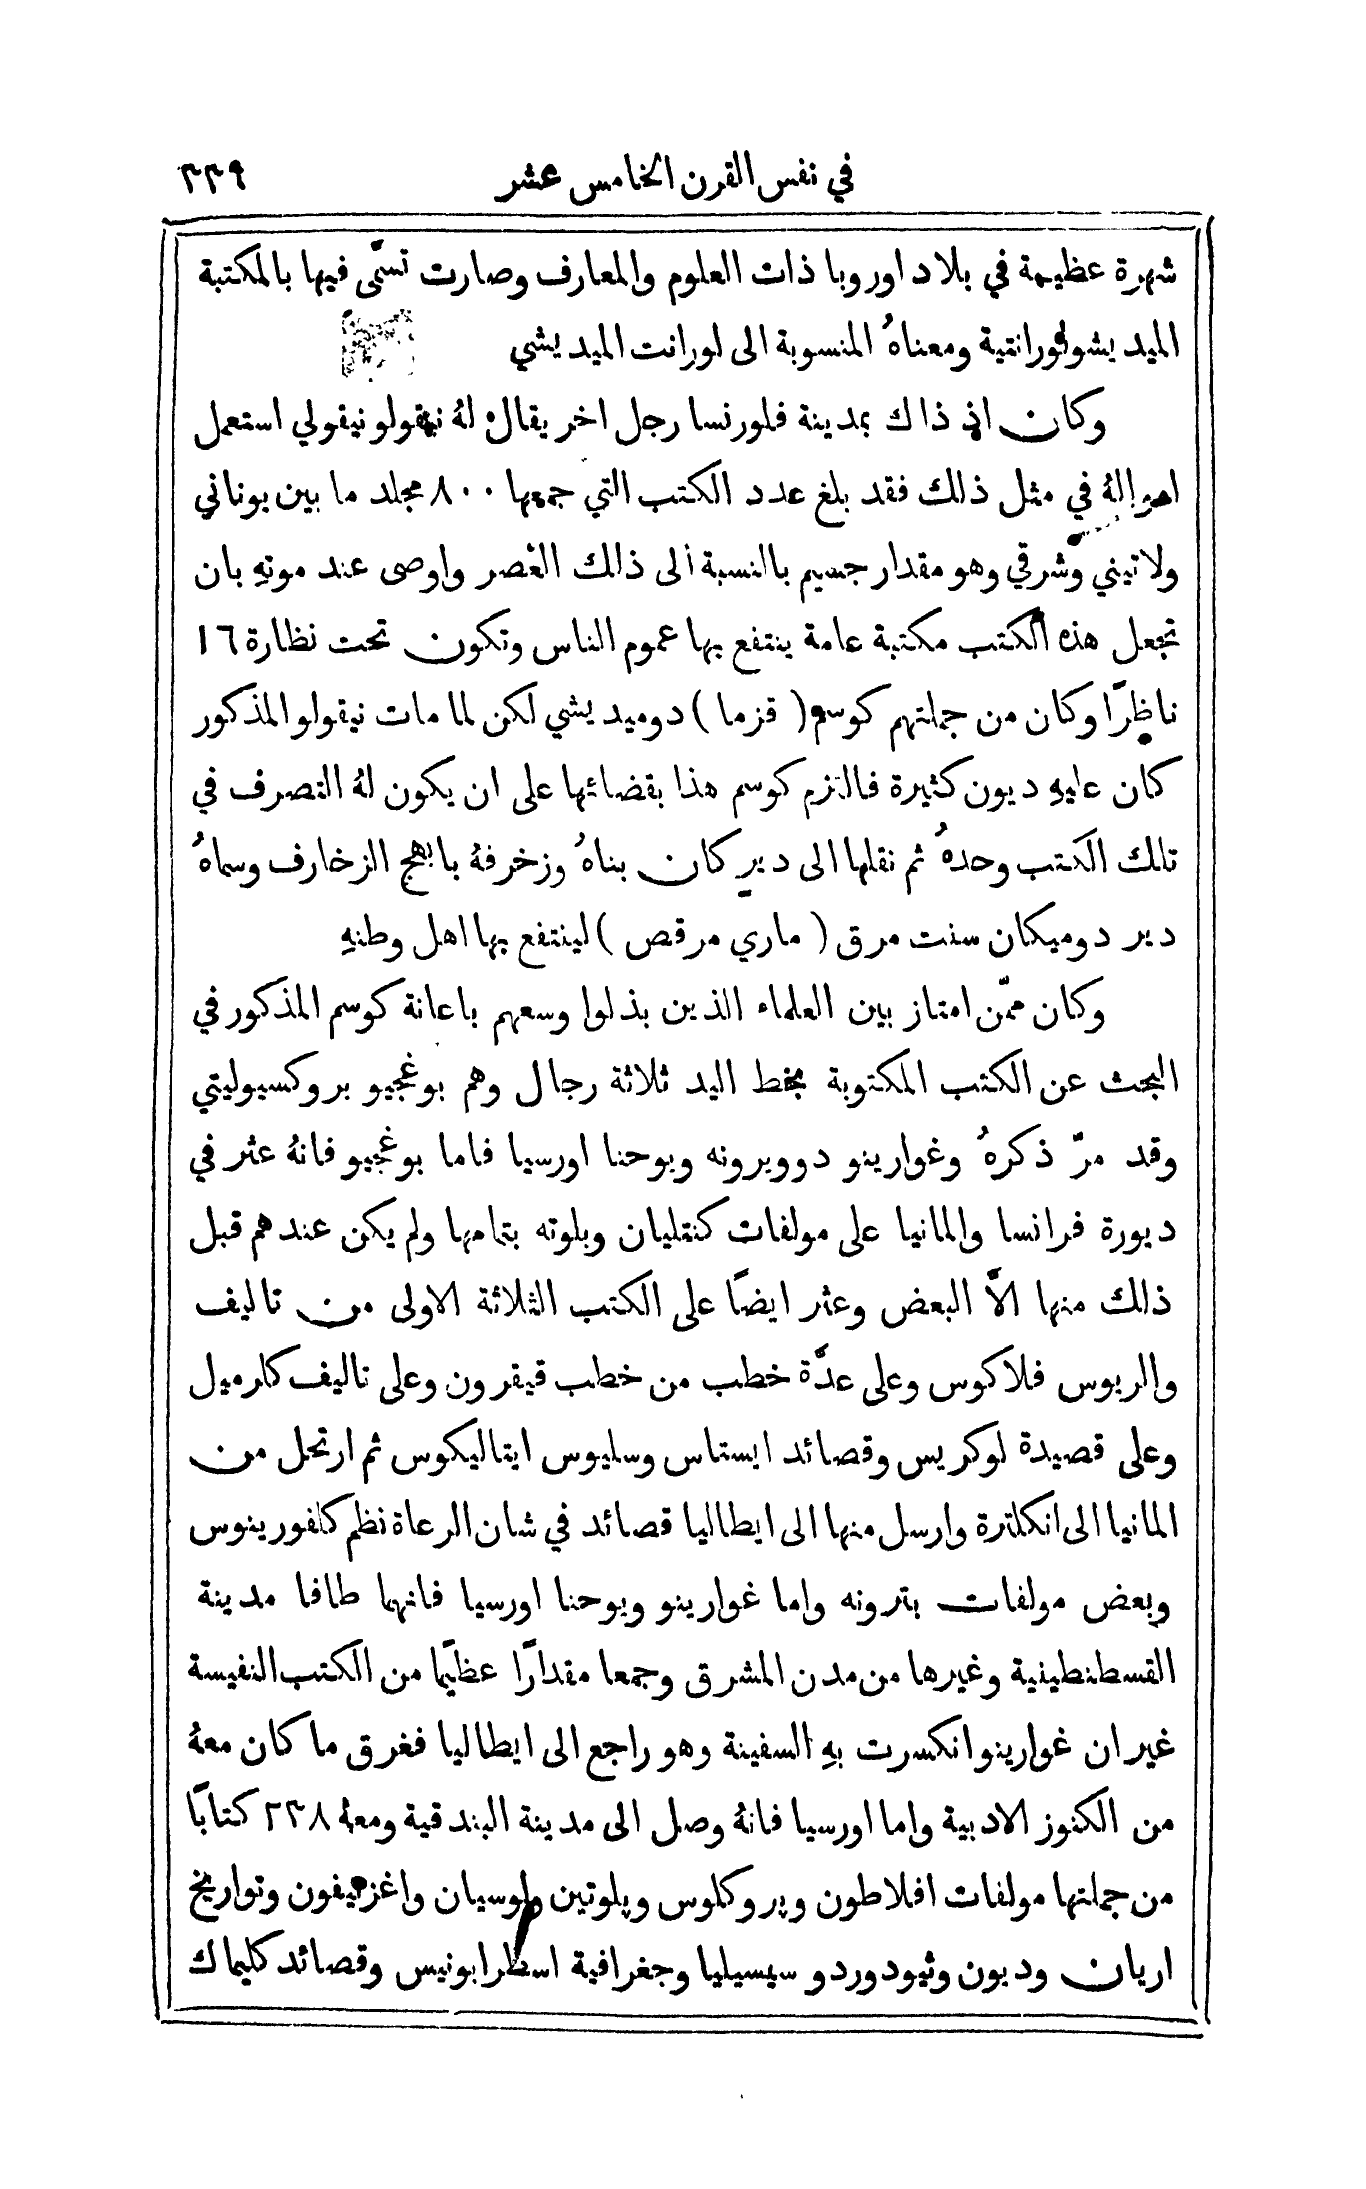 في نفس القرن الخامس عشر ٣٣٩
شهرة عظيمة في بلاد اوروبا ذات العلوم والمعارف وصارت تسمَّى فيها بالمكتبة
الميديشولورانتية ومعناهُ المنسوبة الى لورانت الميديشي
وكان اذ ذاك بمدينة فلورنسا رجل اخر يقال لهُ نيقولو نيقولي استعمل
اموالهُ في مثل ذلك فقد بلغ عدد الكتب التي جمعها ٨٠٠ مجلد ما بين يوناني
ولاتيني وشرقي وهو مقدار جسيم بالنسبة الى ذلك العصر واوصى عند موتهِ بان
تجعل هذه الكتب مكتبة عامة ينتفع بها عموم الناس وتكون تحت نظارة ١٦
ناظرًا وكان من جملتهم كوسم ( قزما ) دوميديشي لكن لما مات نيقولو المذكور
كان عليهِ ديون كثيرة فالتزم كوسم هذا بقضائها على ان يكون لهُ التصرف في
تلك الكتب وحدهُ ثم نقلها الى دير كان بناهُ وزخرفهُ بابهج الزخارف وسماهُ
دير دوميكان سنت مرق ( ماري مرقص ) لينتفع بها اهل وطنهِ
وكان ممَّن امتاز بين العلماء الذين بذلوا وسعهم باعانة كوسم المذكور في
البحث عن الكتب المكتوبة بخط اليد ثلاثة رجال وهم بوغجيو بروكسيوليتي
وقد مرَّ ذكرهُ وغوارينو دوويرونه ويوحنا اورسيا فاما بوغجيو فانهُ عثر في
ديورة فرانسا والمانيا على مولفات كنتليان وبلوته بتمامها ولم يكن عندهم قبل
ذلك منها الَّا البعض وعثر ايضًا على الكتب الثلاثة الاولى من تاليف
والريوس فلاكوس وعلى عدَّة خطب من خطب قيقرون وعلى تاليف كلرميل
وعلى قصيدة لوكريس وقصائد ايستاس وسليوس ايتاليكوس ثم ارتحل من
المانيا الى انكلترة وارسل منها الى ايطاليا قصائد في شان الرعاة نظم كلفورينوس
وبعض مولفات بترونه واما غوارينو ويوحنا اورسيا فانهما طافا مدينة
القسطنطينية وغيرها من مدن المشرق وجمعا مقدارًا عظيمًا من الكتب النفيسة
غير ان غوارينو انكسرت بهِ السفينة وهو راجع الى ايطاليا فغرق ما كان معهُ
من الكنوز الادبية واما اورسيا فانهُ وصل الى مدينة البندقية ومعهُ ٢٣٨ كتابًا
من جملتها مولفات افلاطون وپروكلوس وپلوتين ولوسيان واغزيفون وتواريخ
اريان وديون وثيودوردو سيسيليا وجغرافية اسطرابونيس وقصائد كليماك